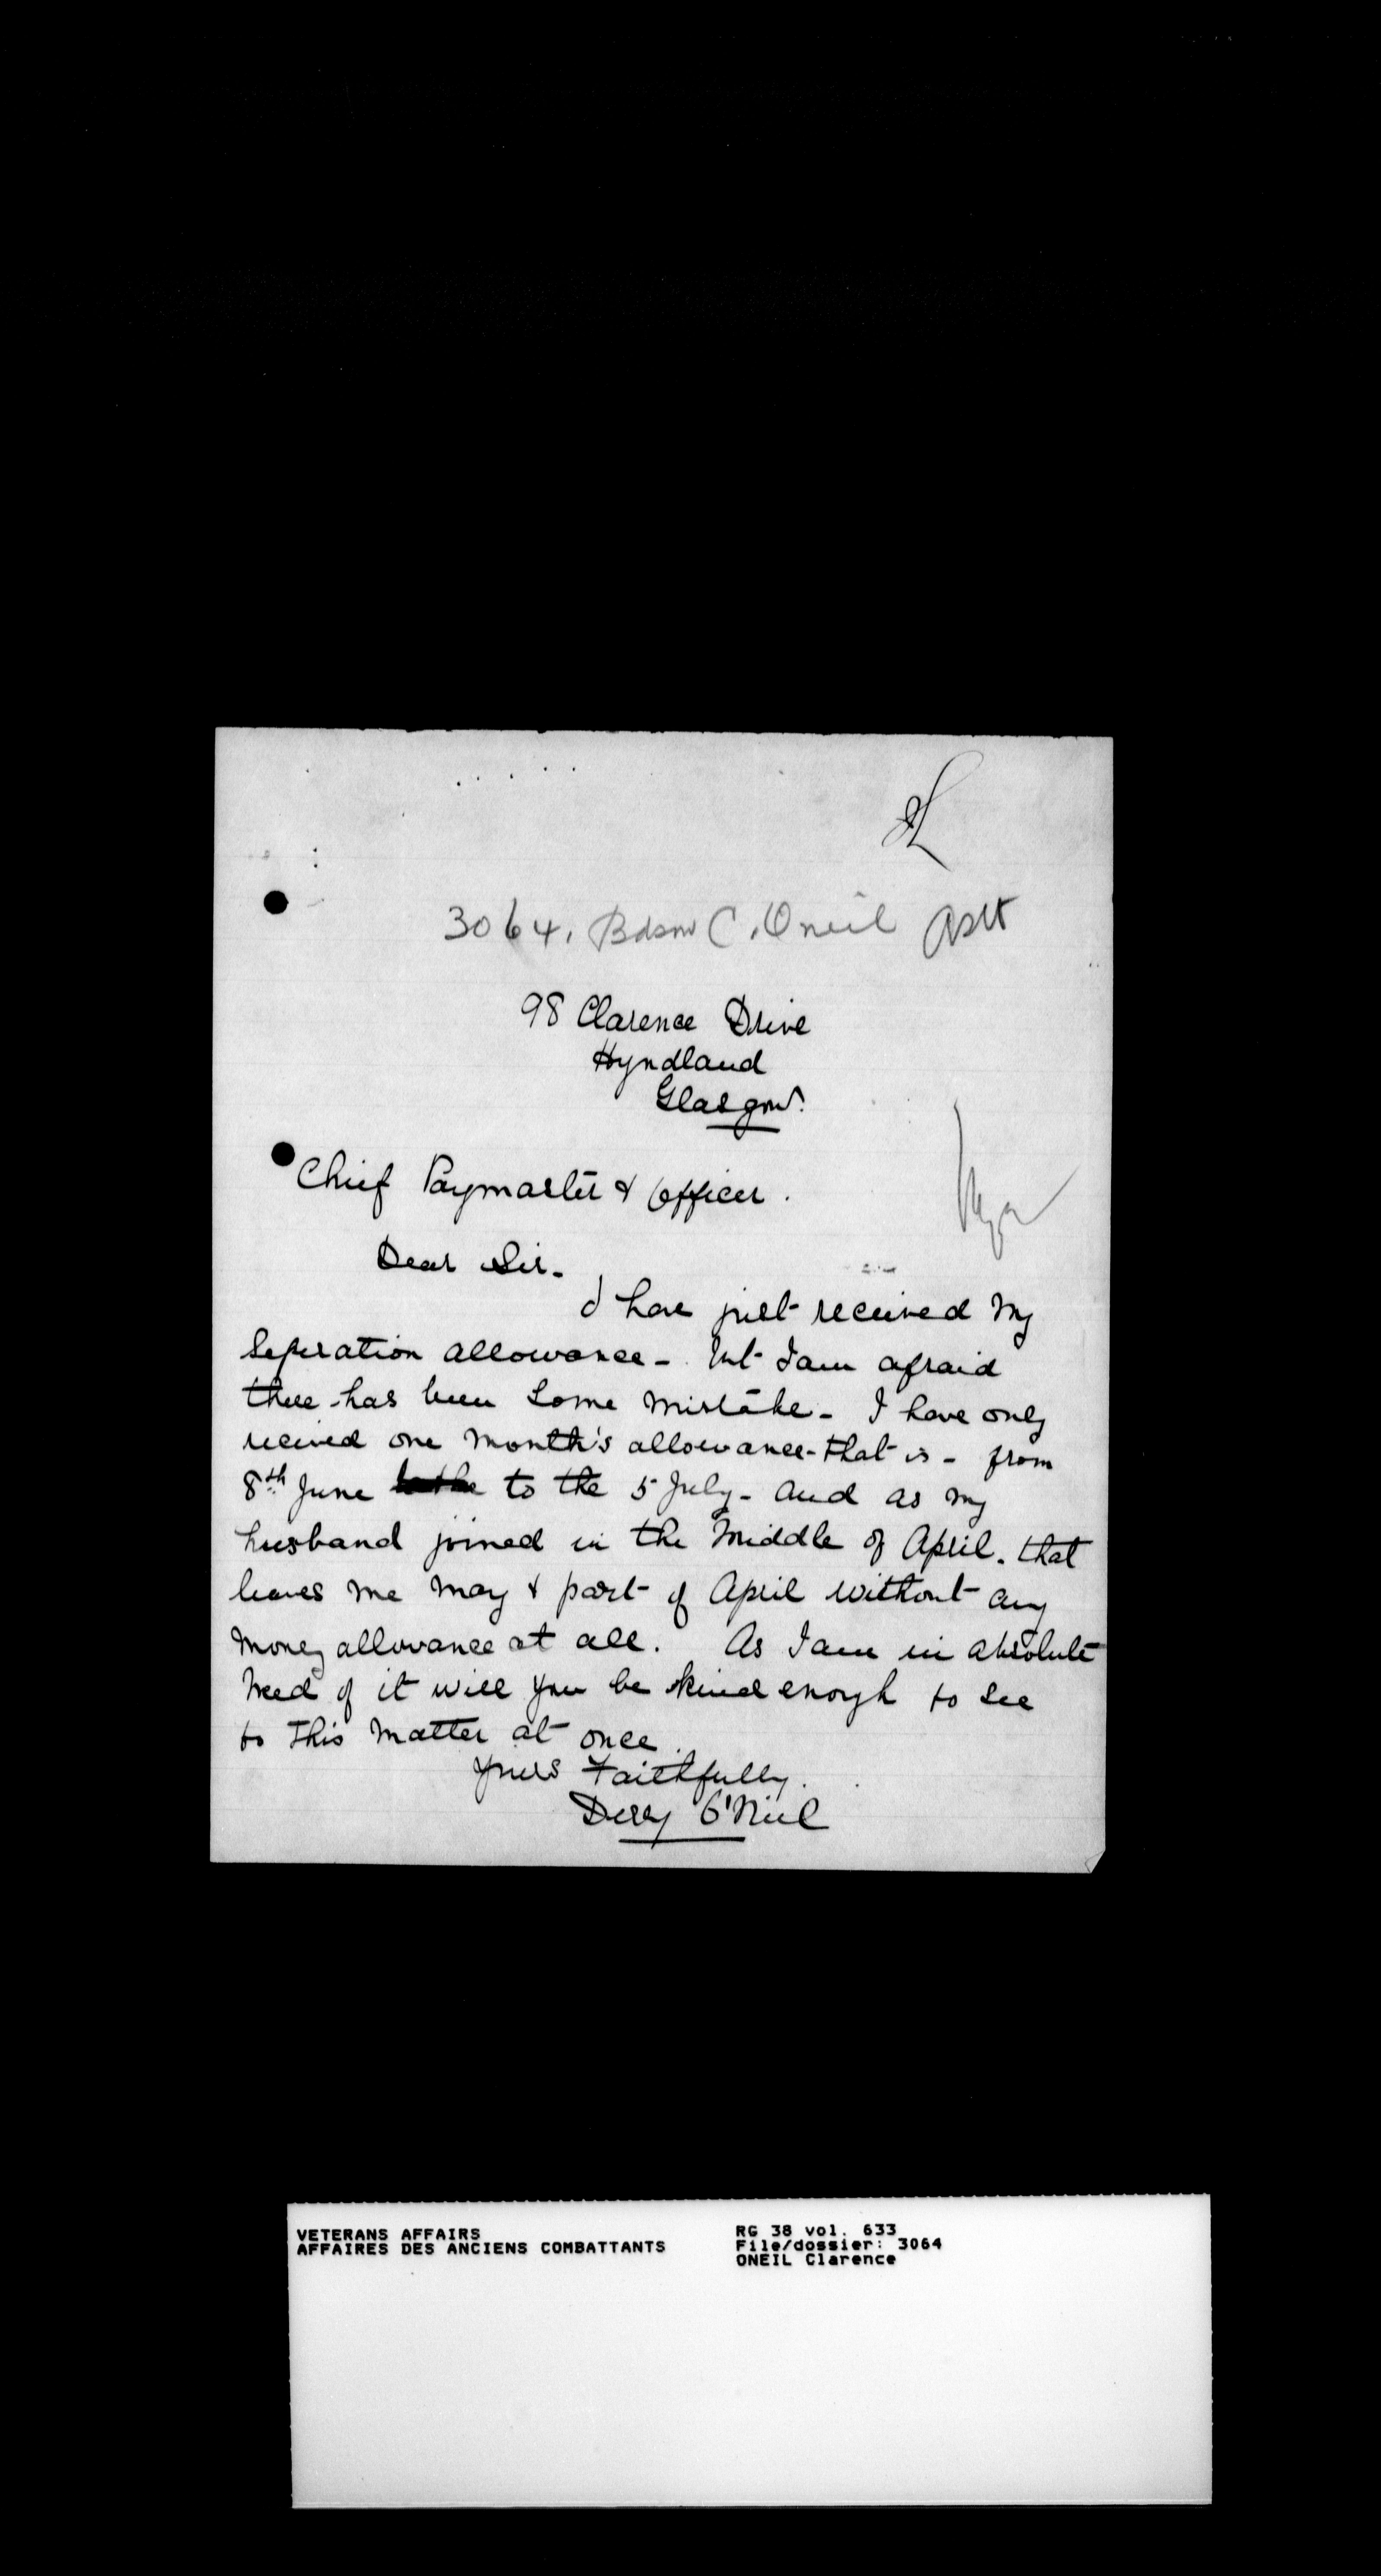 3064, Bdsm C. Oneil
98 Clarence Drive
Hyndland
Glasgow.
Chief Paymaster & Officer.
Dear Sir-
I have just received my
Seperation allowance- but I am afraid
there has been some mistake- I have only
recived one month's allowance-that is- from
8th June to the 5 July- and as my
husband joined in the middle of April. that
leaves me may & part of April without any
money allowance at all. As I am in absolute
need of it will you be kind enough to see
to this matter at once.
Yours Faithfully.
O'Niel
VETERANS AFFAIRS RG 38 vol. 633
AFFAIRES DES ANCIENS COMBATTANTS File/dossier: 3064
ONEIL Clarence